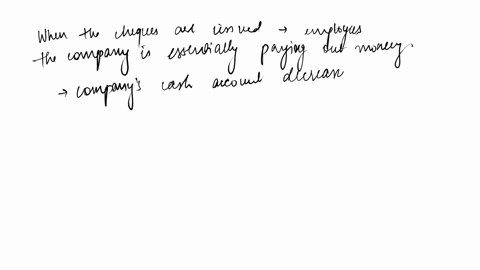 When the cheques are issued → employees
the company is essentially paying out money.
→ company's cash account decrease